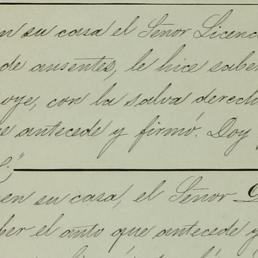 en su casa el Señor Licenc
de ausentes, le hice saber
oye, con la salva derech
antecede y firmó. Doy
en su casa, el Señor
ber el auto que antecede y